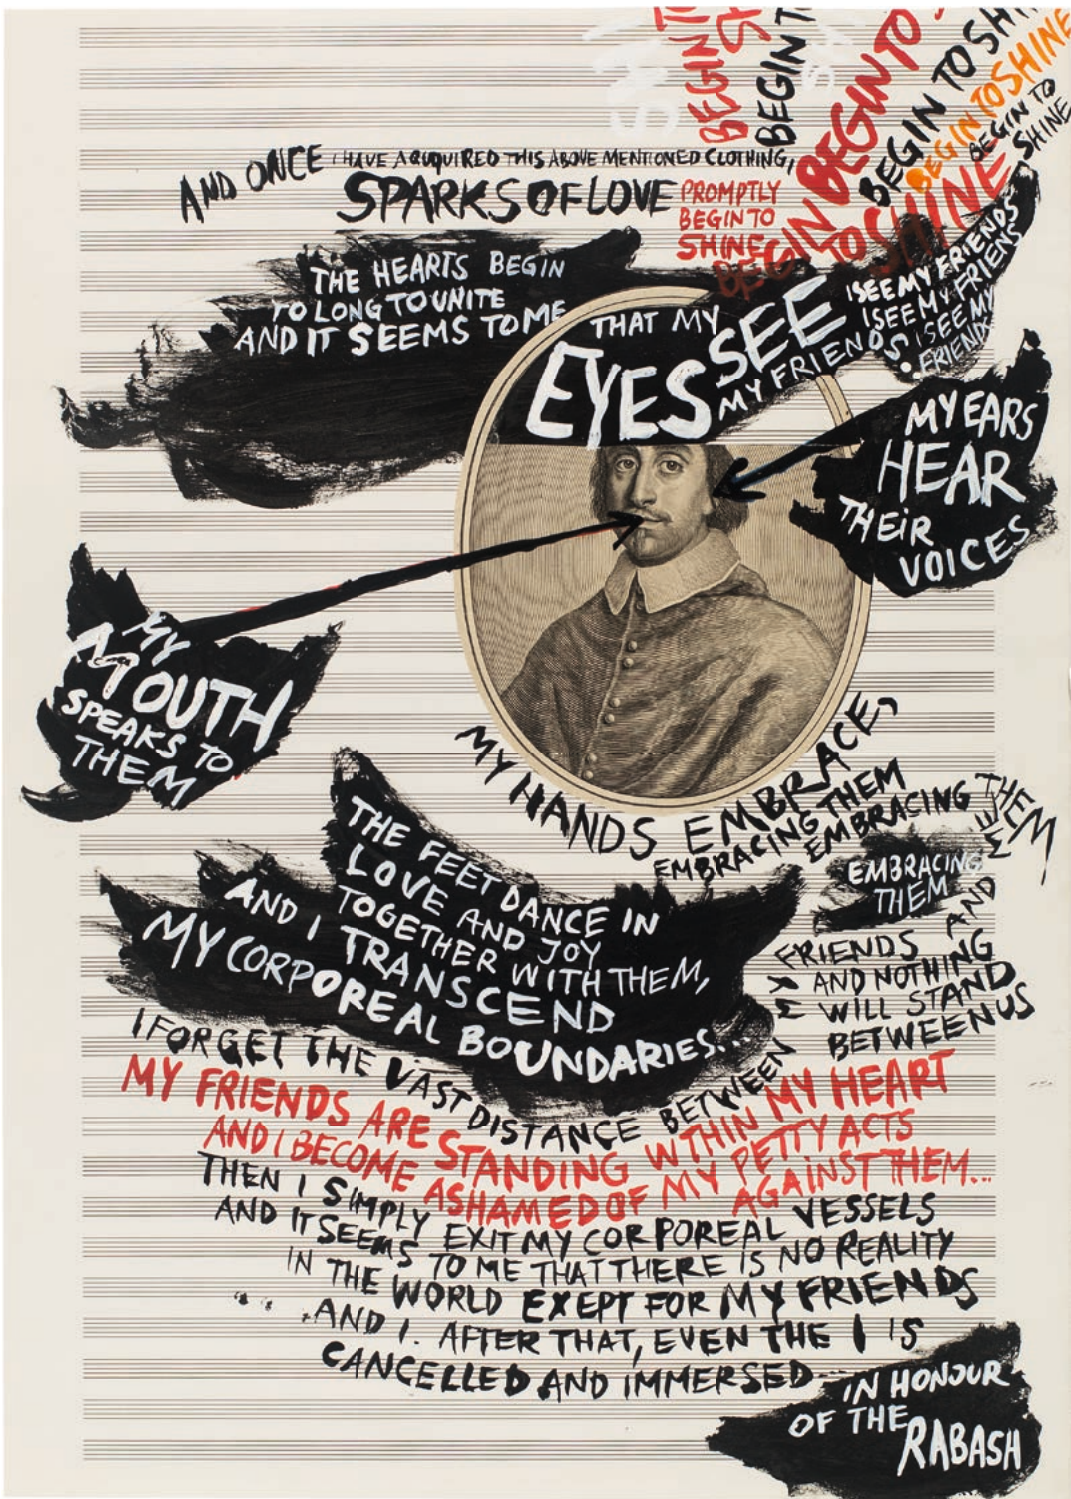 AND ONCE I HAVE AQUQUIRED THIS ABOVE MENTIONED CLOTHING,
SPARKS OF LOVE
PROMPTLY
BEGIN TO
SHINE
BEGIN TO SHINE
BEGIN TO
BEGIN TO
BEGIN TO
BEGIN TO SHINE
BEGIN TO SHINE
BEGIN TO
SHINE
THE HEARTS BEGIN
TO LONG TO UNITE
AND IT SEEMS TO ME
THAT MY
EYES SEE
MY FRIENDS.
I SEE MY FRIENDS
I SEE MY FRIENS
I SEE MY
FRIENDS
MY EARS
HEAR
THEIR
VOICES
MY
MOUTH
SPEAKS TO
THEM
MY HANDS EMBRACE,
EMBRACING THEM
EMBRACING
THEM
EMBRACING
THEM
THE FEET DANCE IN
LOVE AND JOY
TOGETHER WITH THEM,
AND I TRANSCEND
MY CORPOREAL BOUNDARIES...
I FORGET THE VAST DISTANCE BETWEEN
MY FRIENDS AND ME
AND NOTHING
WILL STAND
BETWEEN US
MY FRIENDS ARE STANDING WITHIN MY HEART
AND I BECOME ASHAMED OF MY PETTY ACTS
AGAINST THEM...
THEN I SIMPLY EXIT MY CORPOREAL VESSELS
AND IT SEEMS TO ME THAT THERE IS NO REALITY
IN THE WORLD EXEPT FOR MY FRIENDS
AND I. AFTER THAT, EVEN THE I IS
CANCELLED AND IMMERSED...
IN HONOUR
OF THE
RABASH